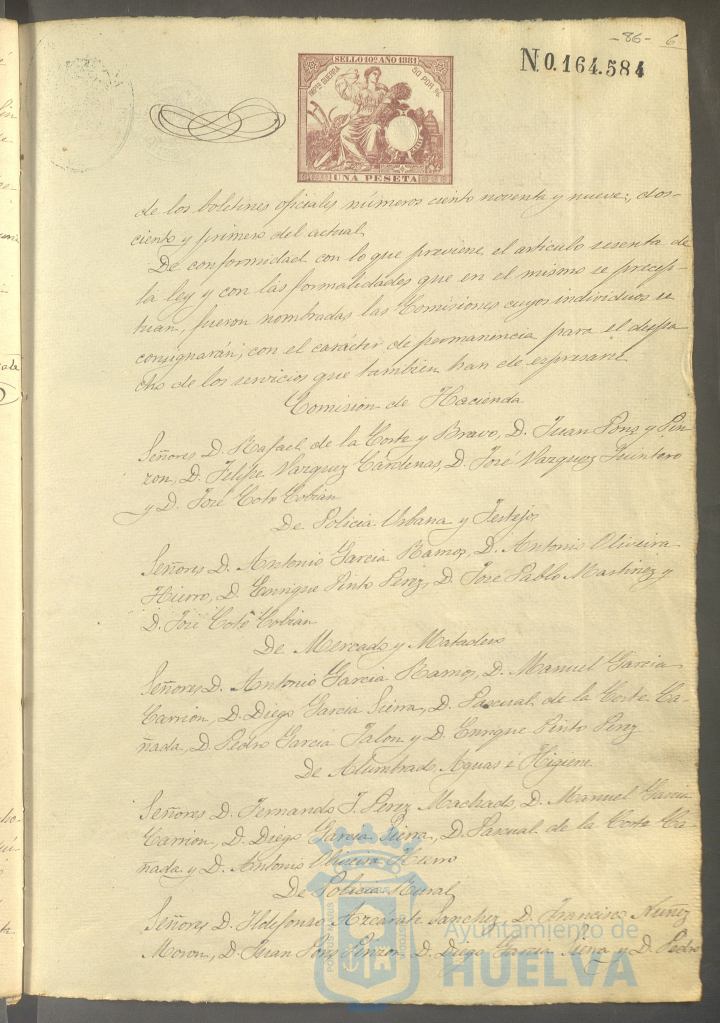 -86- 6
N.0.164.584
SELLO 10º AÑO 1881
UNA PESETA
de los boletines oficiales números ciento noventa y nueve, dos-
ciento y primero del actual.
De conformidad con lo que previene el artículo sesenta de
la ley y con las formalidades que en el mismo se precep-
tuan, fueron nombradas las Comisiones cuyos individuos se
consignarán, con el carácter de permanencia para el despa
cho de los servicios que tambien han de espresarse
Comisión de Hacienda
Señores D. Rafael de la Corte y Bravo, D. Juan Pons y Pin-
zon, D. Felipe Vazquez Cárdenas, D. José Vazquez Quintero
y D. José Coto Cobian
De Policia Urbana y Festejos
Señores D. Antonio Garcia Ramos, D. Antonio Oliveira
Hierro, D. Enrique Pinto Perez, D. José Pablo Martinez y
D. José Coto Cobian
De Mercado y Matadero
Señores D. Antonio Garcia Ramos, D. Manuel Garcia
Carrion, D. Diego Garcia Sierra, D. Pascual de la Corte Ca-
ñada, D. Pedro Garcia Jalon y D. Enrique Pinto Perez
De Alumbrado, Aguas é Higiene
Señores D. Fernando J. Perez Machado, D. Manuel Garcia
Carrion, D. Diego Garcia Sierra, D. Pascual de la Corte Ca-
ñada y D. Antonio Oliveira Hierro
De Policia Rural
Señores D. Ildefonso Azcárate Sanchez, D. Francisco Nuñez
Moron, D. Juan Pons Pinzon, D. Diego Garcia y D. Pedro
Ayuntamiento de
HUELVA